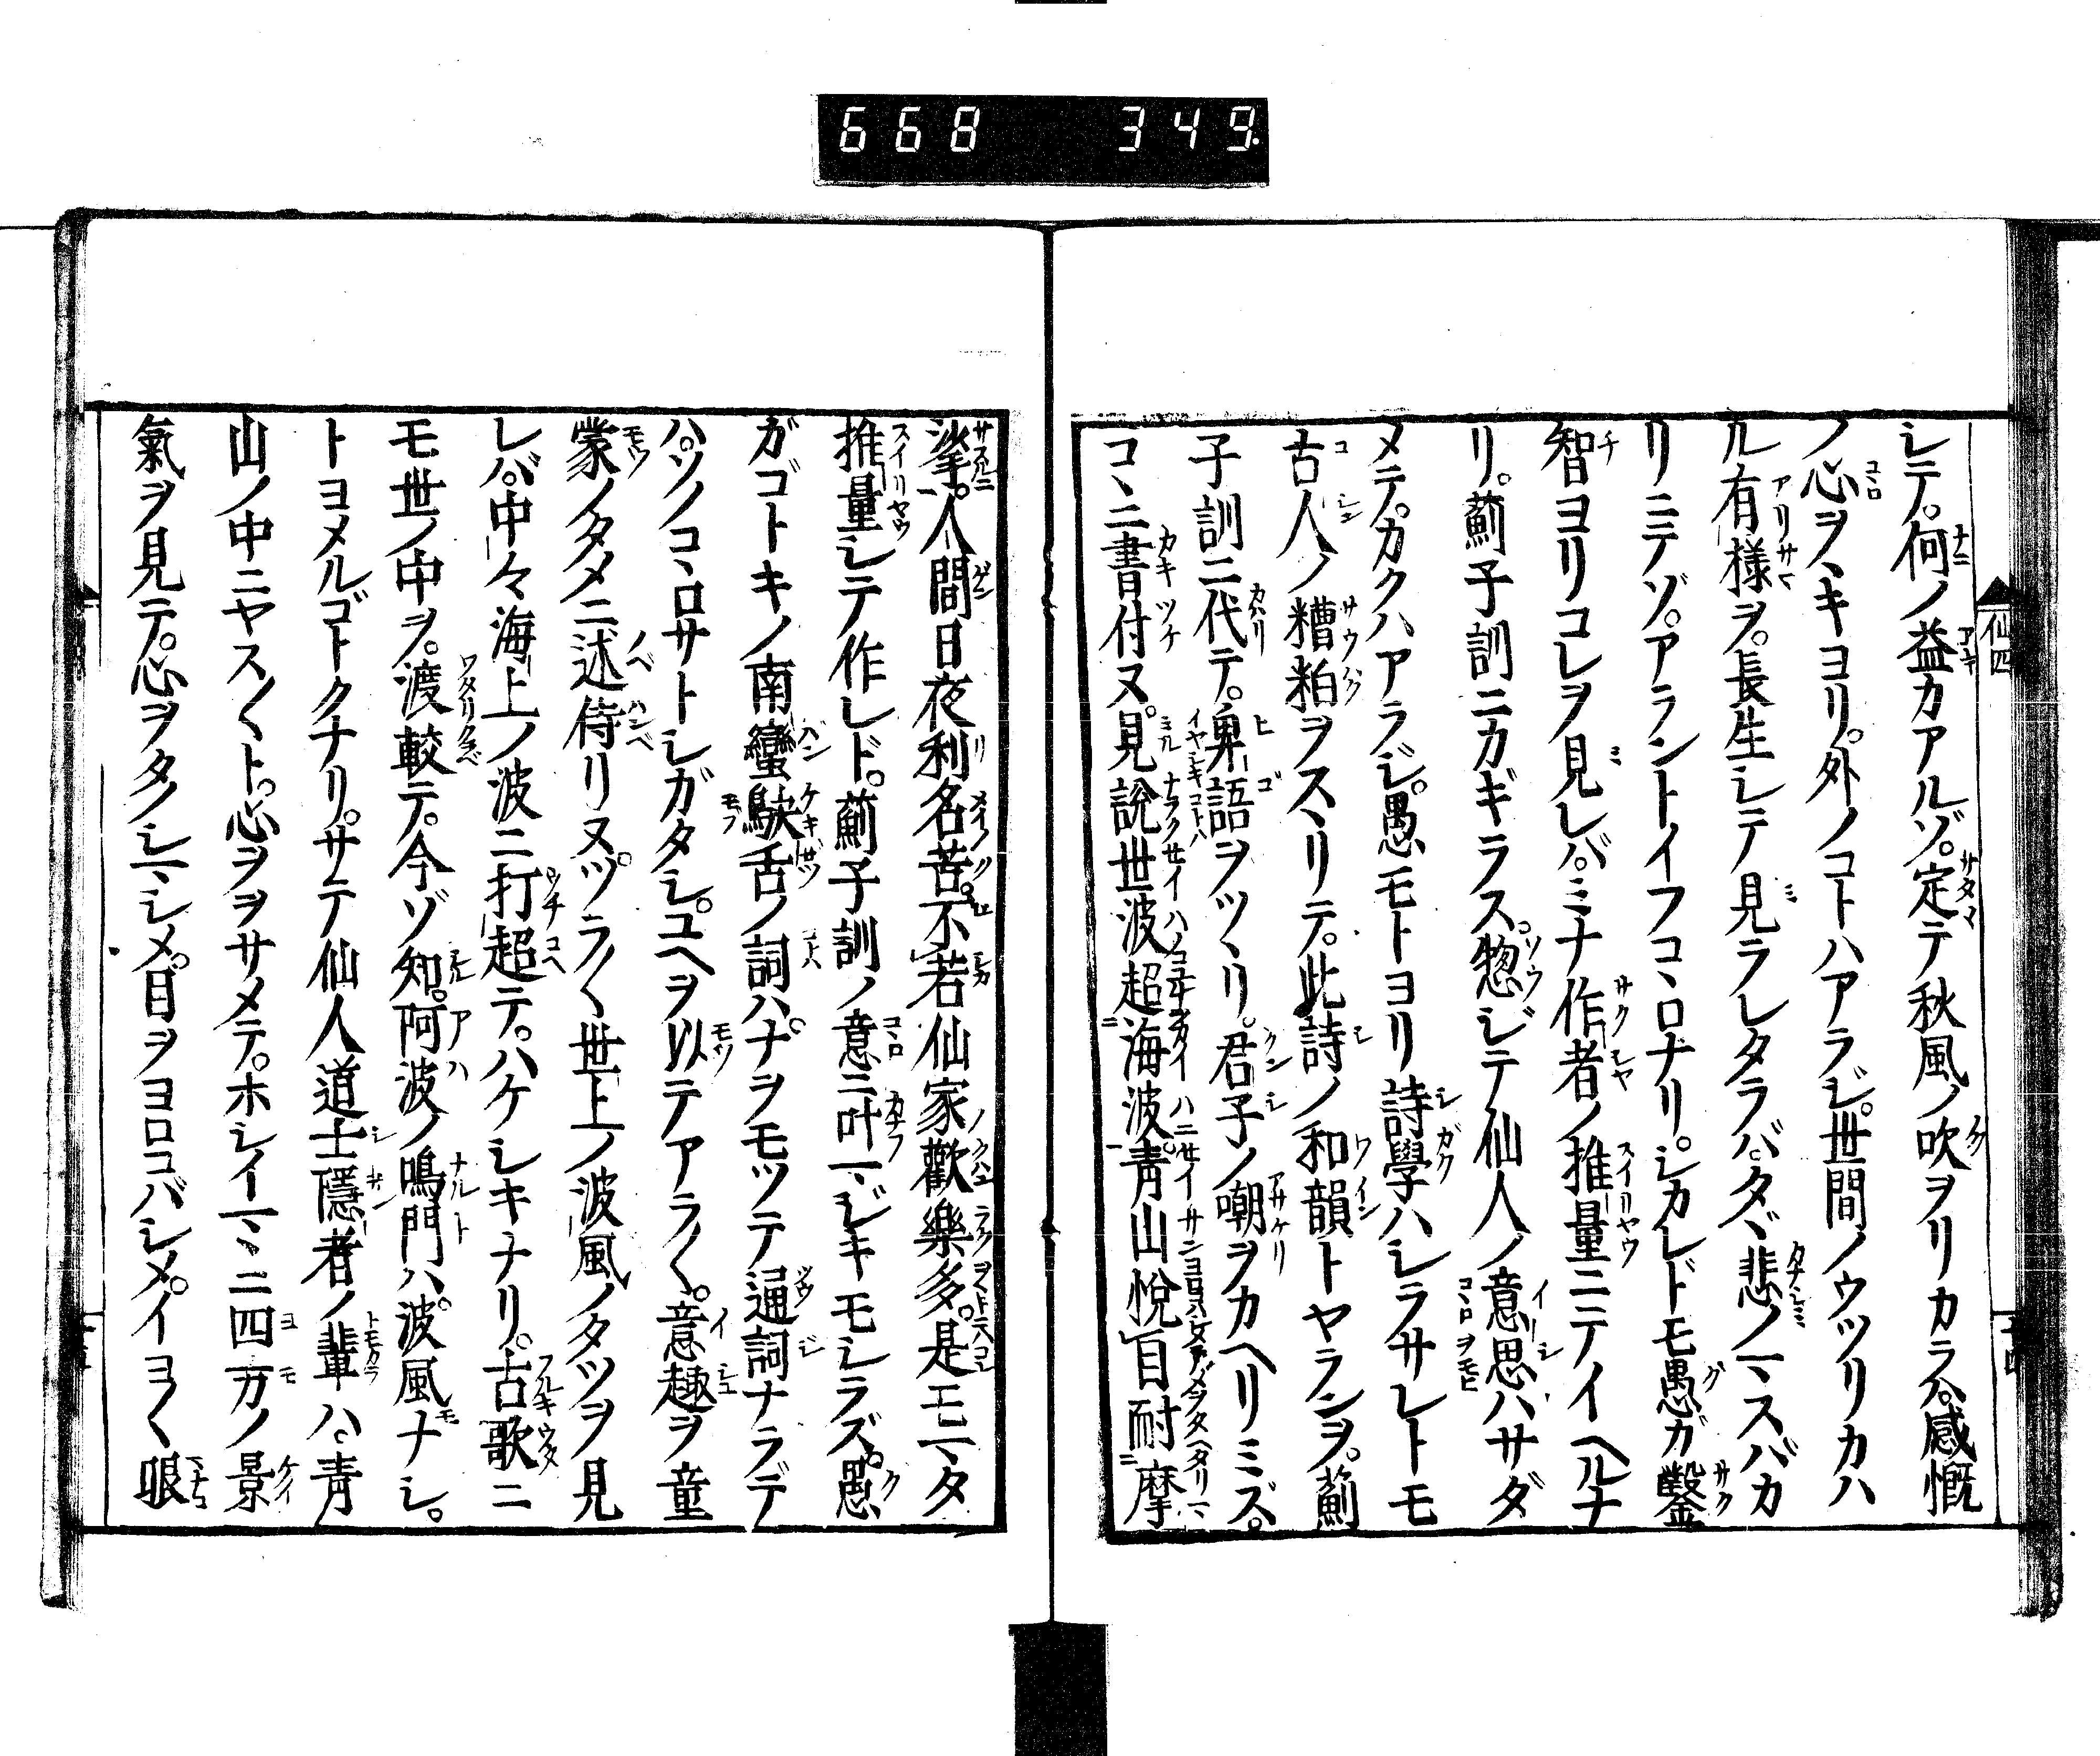 668 349
仙四
シテ。何ノ益カアルゾ。定テ秋風ノ吹ヲリカラ。感慨
ノ心ヲスヽキヨリ。外ノコトハアラジ。世間ノウツリカハ
ル有様ヲ。長生シテ見ラレタラバ。タヾ悲ノマスバカ
リニテゾ。アラントイフコヽロナリ。シカレドモ愚ガ鑿
智ヨリコレヲ見レバ。ミナ作者ノ推量ニテイヘルナ
リ。薊子訓ニカギラス。惣ジテ仙人ノ意思ハサダ
メテ。カクハアラジ。愚モトヨリ詩學ハシラサレトモ
古人ノ糟粕ヲスヽリテ。此詩ノ和韻トヤランヲ。薊
子訓ニ代テ。卑語ヲツヾリ。君子ノ嘲ヲカヘリミズ。
コヽニ書付ヌ。見說世波超海波。靑山悅目耐摩
挲。人間日夜利名苦。不若仙家歡樂多。是モマタ
推量シテ作レド。薊子訓ノ意ニ叶マジキモシラズ。愚
ガゴトキノ南蠻鴃舌ノ詞ハ。ナヲモツテ通詞ナラデ
ハ。ソノコヽロサトシガタシ。ユヘヲ以テアラ〱。意趣ヲ童
蒙ノタメニ述侍リヌ。ツラ〱世上ノ波風ノタツヲ見
レバ。中々海上ノ波ニ打超テ。ハケシキナリ。古歌ニ
モ世ノ中ヲ。渡較テ。今ゾ知。阿波ノ鳴門ハ。波風ナシ。
トヨメルゴトクナリ。サテ仙人道士隱者ノ輩ハ。靑
山ノ中ニヤス〱ト。心ヲヲサメテ。ホシイマヽニ四方ノ景
氣ヲ見テ。心ヲタノシマシメ。目ヲヨロコバシメ。イヨ〱眼